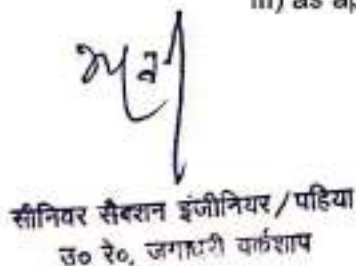 III) as ap
सीनियर सैक्शन इंजीनियर/पहिया
उ० रे०, जगाधरी वर्कशाप